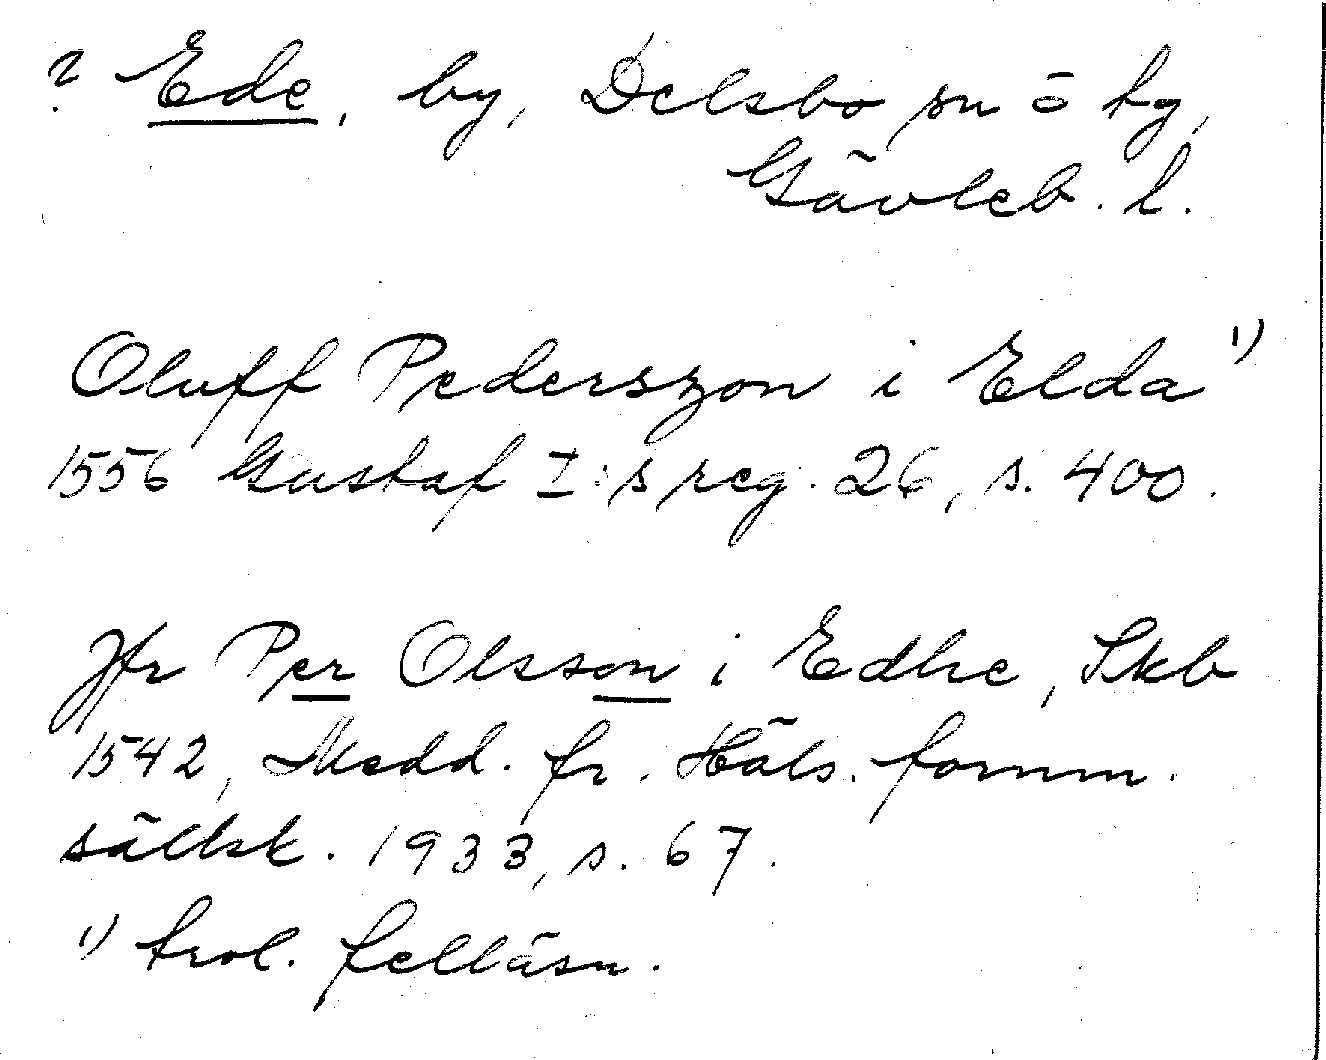 ? Ede, by, Delsbo sn ö hg,
Gävleb. l.
Oluff Pederszon i Elda 1)
1556 Gustaf I:s reg. 26, s. 400.
Jfr Per Olsson i Edhe, Skb
1542, Medd. fr. Häls. fornm.
sällsk. 1933, s. 67.
1) trol. felläsn.